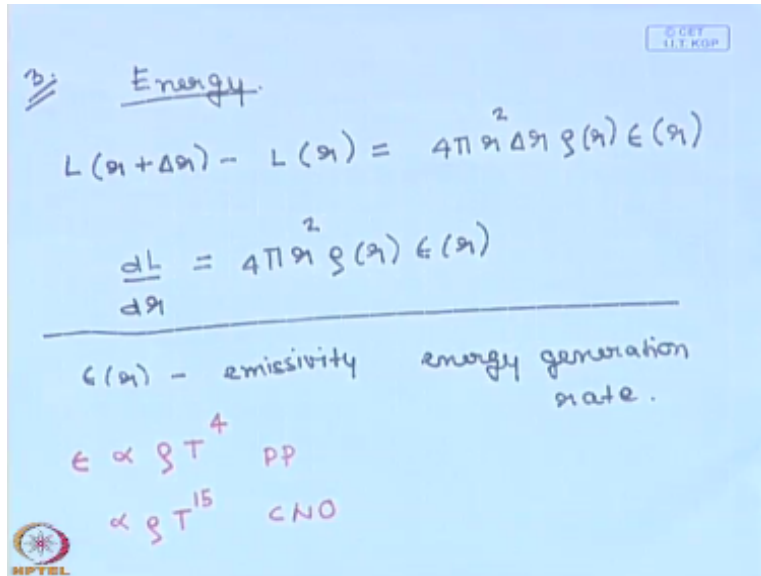 © CET
I.I.T. KGP
3. Energy.
L(r+Δr) - L(r) = 4πr²Δr ρ(r) ϵ(r)
dL/dr = 4πr² ρ(r) ϵ(r)
ϵ(r) - emissivity energy generation
rate.
ϵ ∝ ρT⁴ PP
∝ ρT¹⁵ CNO
NPTEL